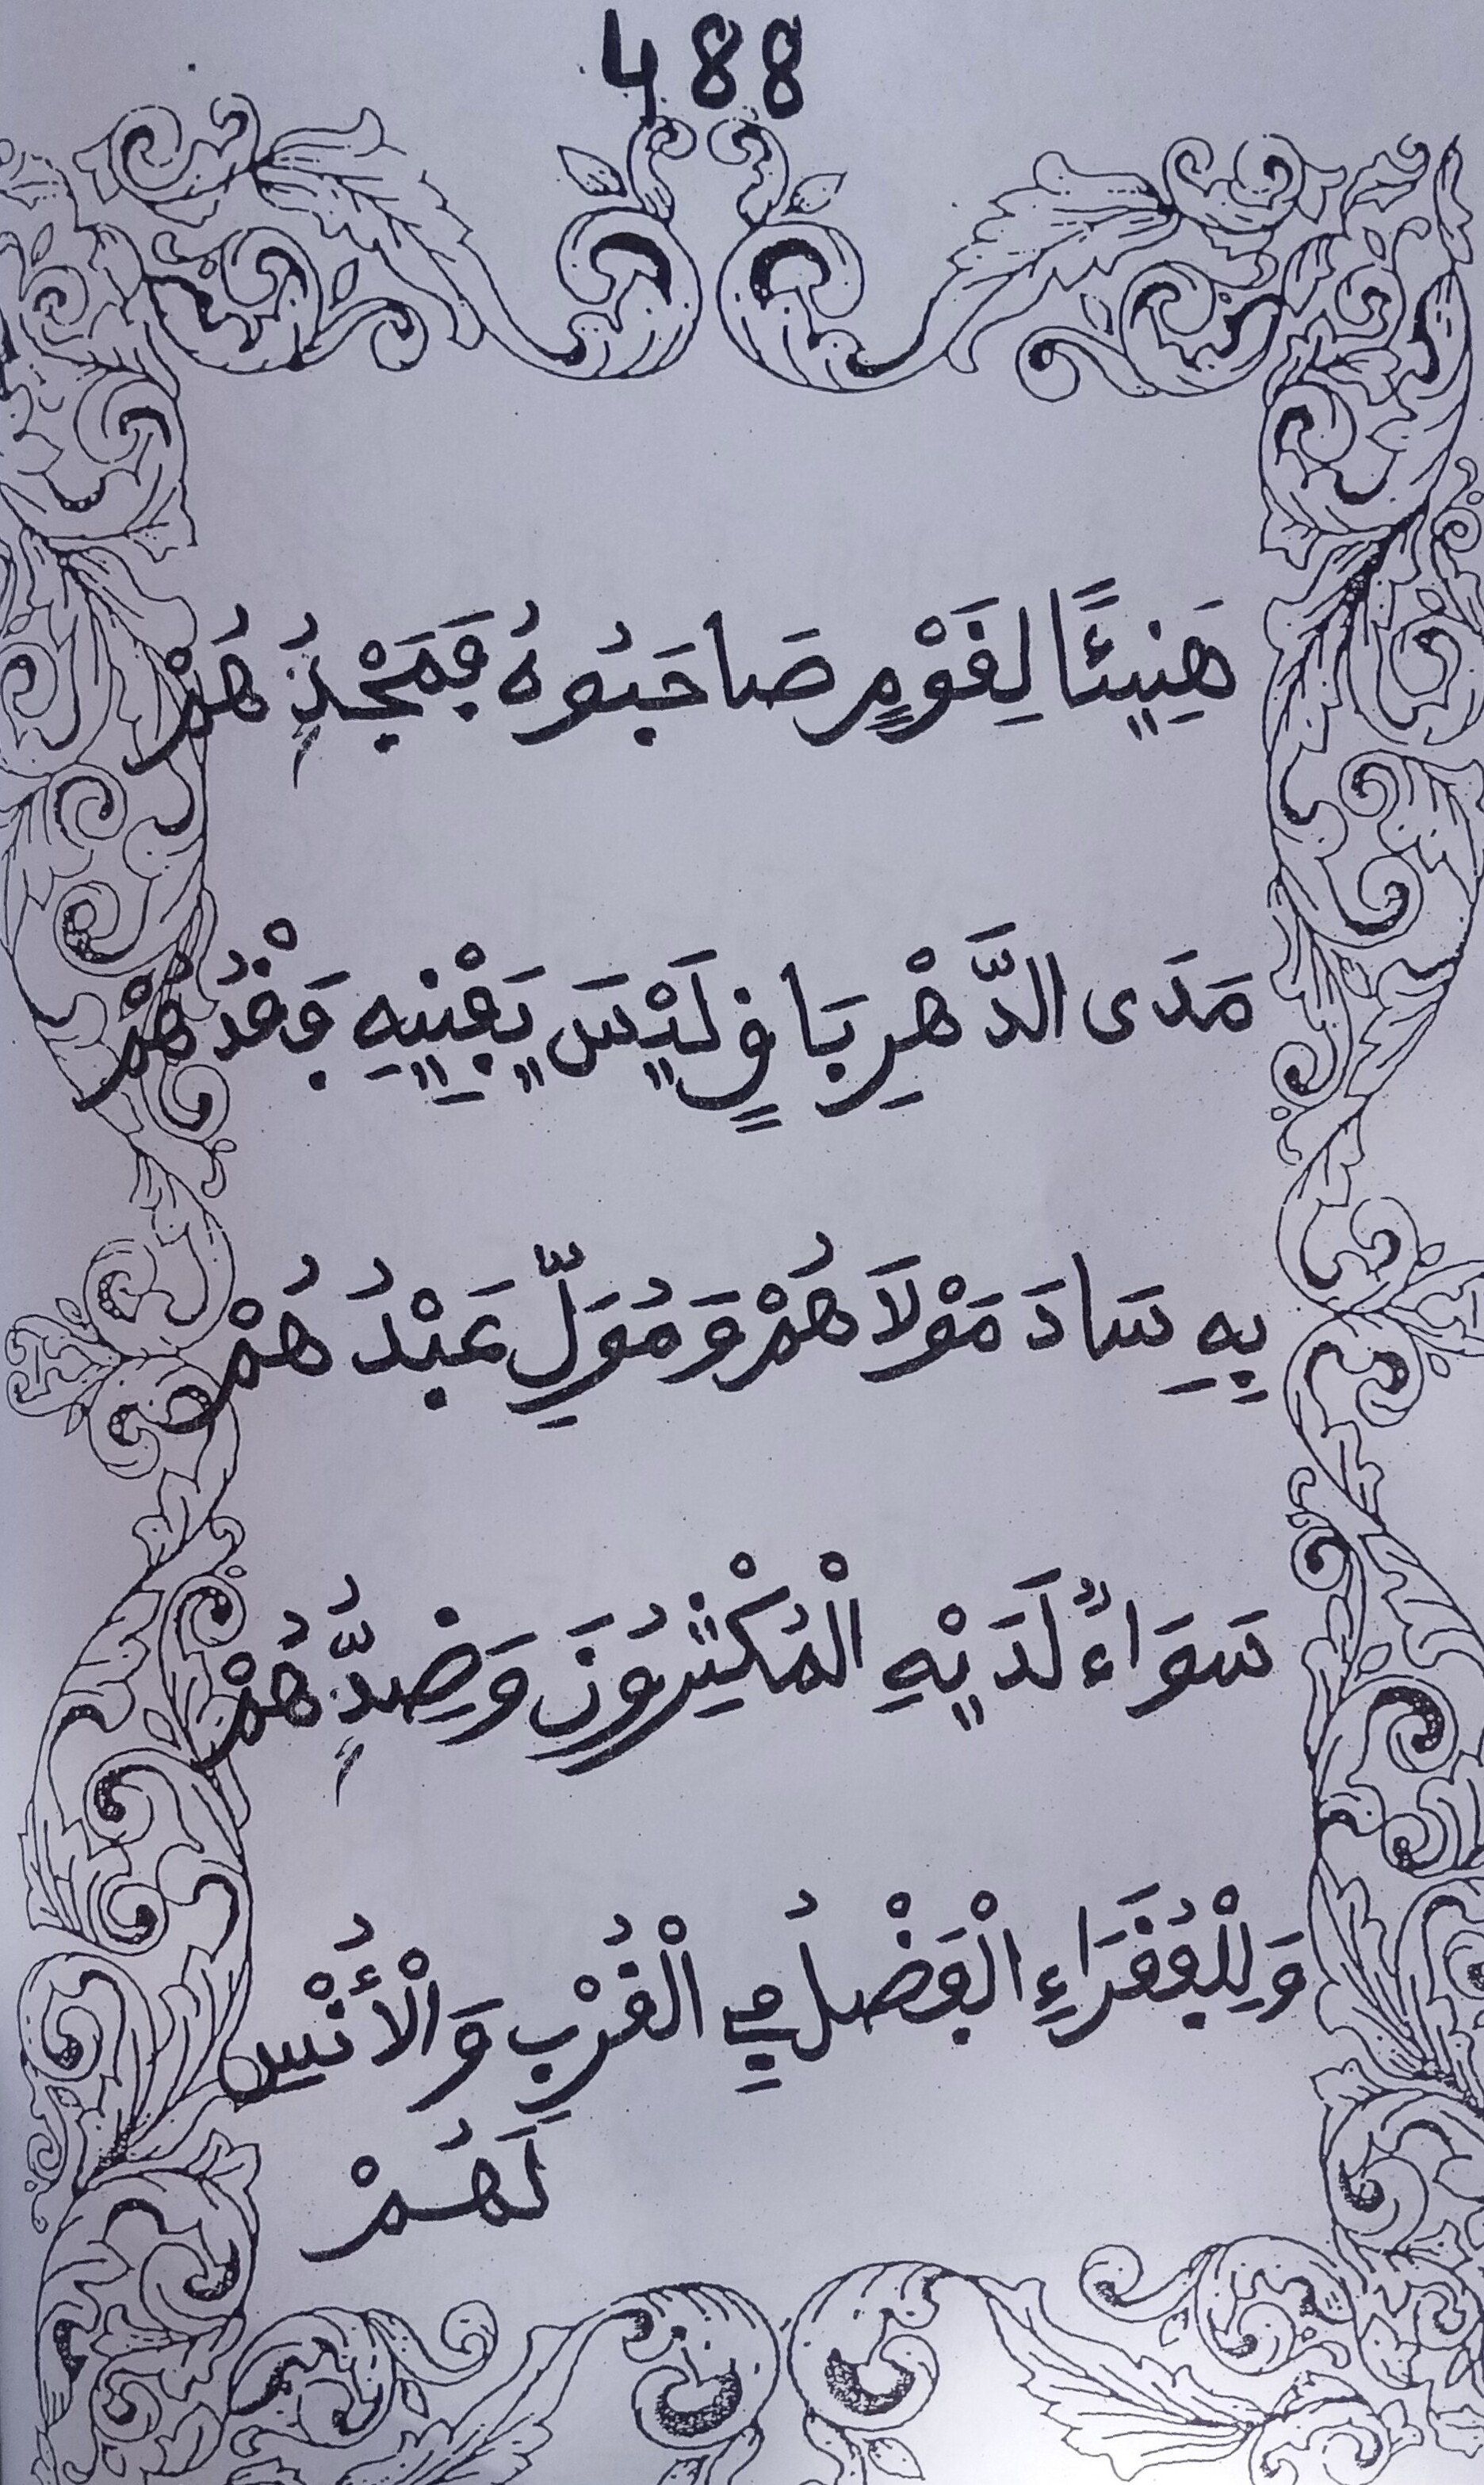 488
هَنِيئًا لِقَوْمٍ صَاحَبُوهُ فَمَجْدُهُمْ
مَدَى الدَّهْرِ بَاقٍ لَيْسَ يَفْنِيهِ فَقْدُهُمْ
بِهِ سَادَ مَوْلَاهُمْ وَمُوَلِّ عَبْدُهُمْ
سَوَاءٌ لَدَيْهِ الْمُكْثِرُونَ وَضِدُّهُمْ
وَلِلْفُقَرَاءِ الْفَضْلُ فِي الْقُرْبِ وَالْأُنْسِ
لَهُمْ